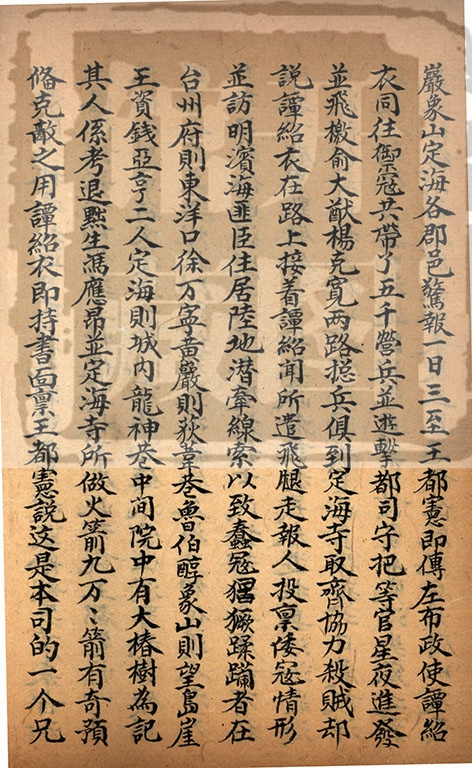 巖象山定海各郡邑驚報一日三至王都憲即傳左布政使譚紹
衣同往禦寇共帶了五千營兵並遊擊都司守把等官星夜進發
並飛檄俞大猷楊克寬兩路摠兵俱到定海寺取齊協力殺賊却
說譚紹衣在路上接着譚紹聞所遣飛腿走報人投禀倭寇情形
並訪明濱海匪臣住居陸地潜牽線索以致蠢寇猖獗蹂躪者在
台州府則東洋口徐万寧黄巖則狄葦巷魯伯醇象山則望島崖
王資錢亞亨二人定海則城内龍神巷中間院中有大樁樹為記
其人係考退黜生馮應昂並定海寺所做火箭九万〻箭有奇預
俻克敵之用譚紹衣即持書面禀王都憲說这是本司的一个兄